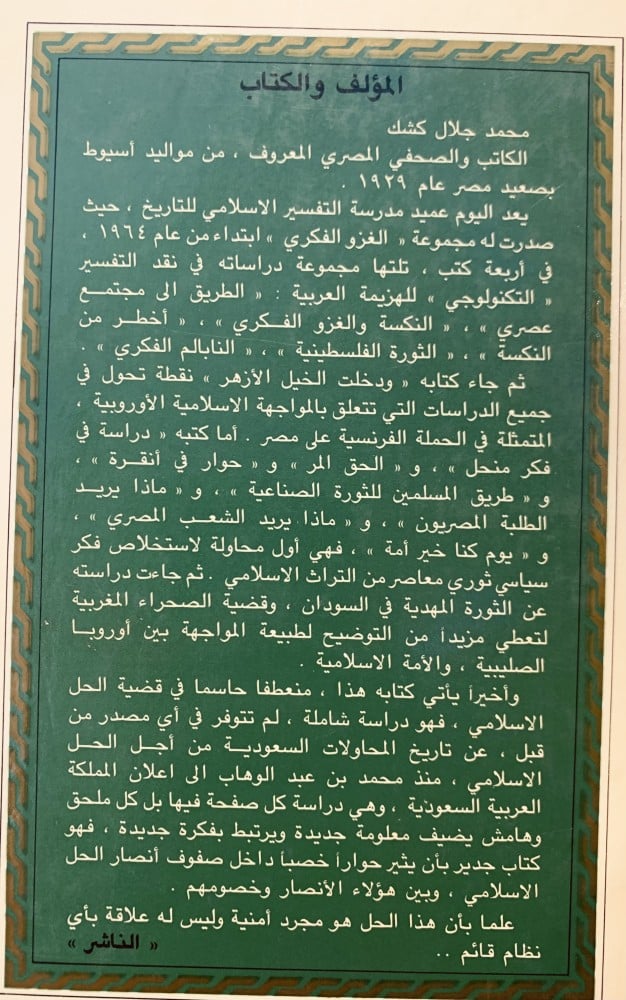 المؤلف والكتاب
محمد جلال كشك
الكاتب والصحفي المصري المعروف ، من مواليد أسيوط
بصعيد مصر عام ١٩٢٩ .
يعد اليوم عميد مدرسة التفسير الاسلامي للتاريخ ، حيث
صدرت له مجموعة « الغزو الفكري » ابتداء من عام ١٩٦٤ ،
في أربعة كتب ، تلتها مجموعة دراساته في نقد التفسير
« التكنولوجي » للهزيمة العربية : « الطريق الى مجتمع
عصري » ، « النكسة والغزو الفكري » ، « أخطر من
النكسة » ، « الثورة الفلسطينية » ، « النابالم الفكري » .
ثم جاء كتابه « ودخلت الخيل الأزهر » نقطة تحول في
جميع الدراسات التي تتعلق بالمواجهة الاسلامية الأوروبية ،
المتمثلة في الحملة الفرنسية على مصر . أما كتبه « دراسة في
فكر منحل » ، و « الحق المر » و « حوار في أنقرة » ،
و « طريق المسلمين للثورة الصناعية » ، و « ماذا يريد
الطلبة المصريون » ، و « ماذا يريد الشعب المصري » ،
و « يوم كنا خير أمة » ، فهي أول محاولة لاستخلاص فكر
سياسي ثوري معاصر من التراث الاسلامي . ثم جاءت دراسته
عن الثورة المهدية في السودان ، وقضية الصحراء المغربية
لتعطي مزيداً من التوضيح لطبيعة المواجهة بين أوروبا
الصليبية ، والأمة الاسلامية .
وأخيراً يأتي كتابه هذا ، منعطفا حاسما في قضية الحل
الاسلامي ، فهو دراسة شاملة ، لم تتوفر في أي مصدر من
قبل ، عن تاريخ المحاولات السعودية من أجل الحل
الاسلامي ، منذ محمد بن عبد الوهاب الى اعلان المملكة
العربية السعودية ، وهي دراسة كل صفحة فيها بل كل ملحق
وهامش يضيف معلومة جديدة ويرتبط بفكرة جديدة ، فهو
كتاب جدير بأن يثير حواراً خصباً داخل صفوف أنصار الحل
الاسلامي ، وبين هؤلاء الأنصار وخصومهم .
علما بأن هذا الحل هو مجرد أمنية وليس له علاقة بأي
نظام قائم .. « الناشر »